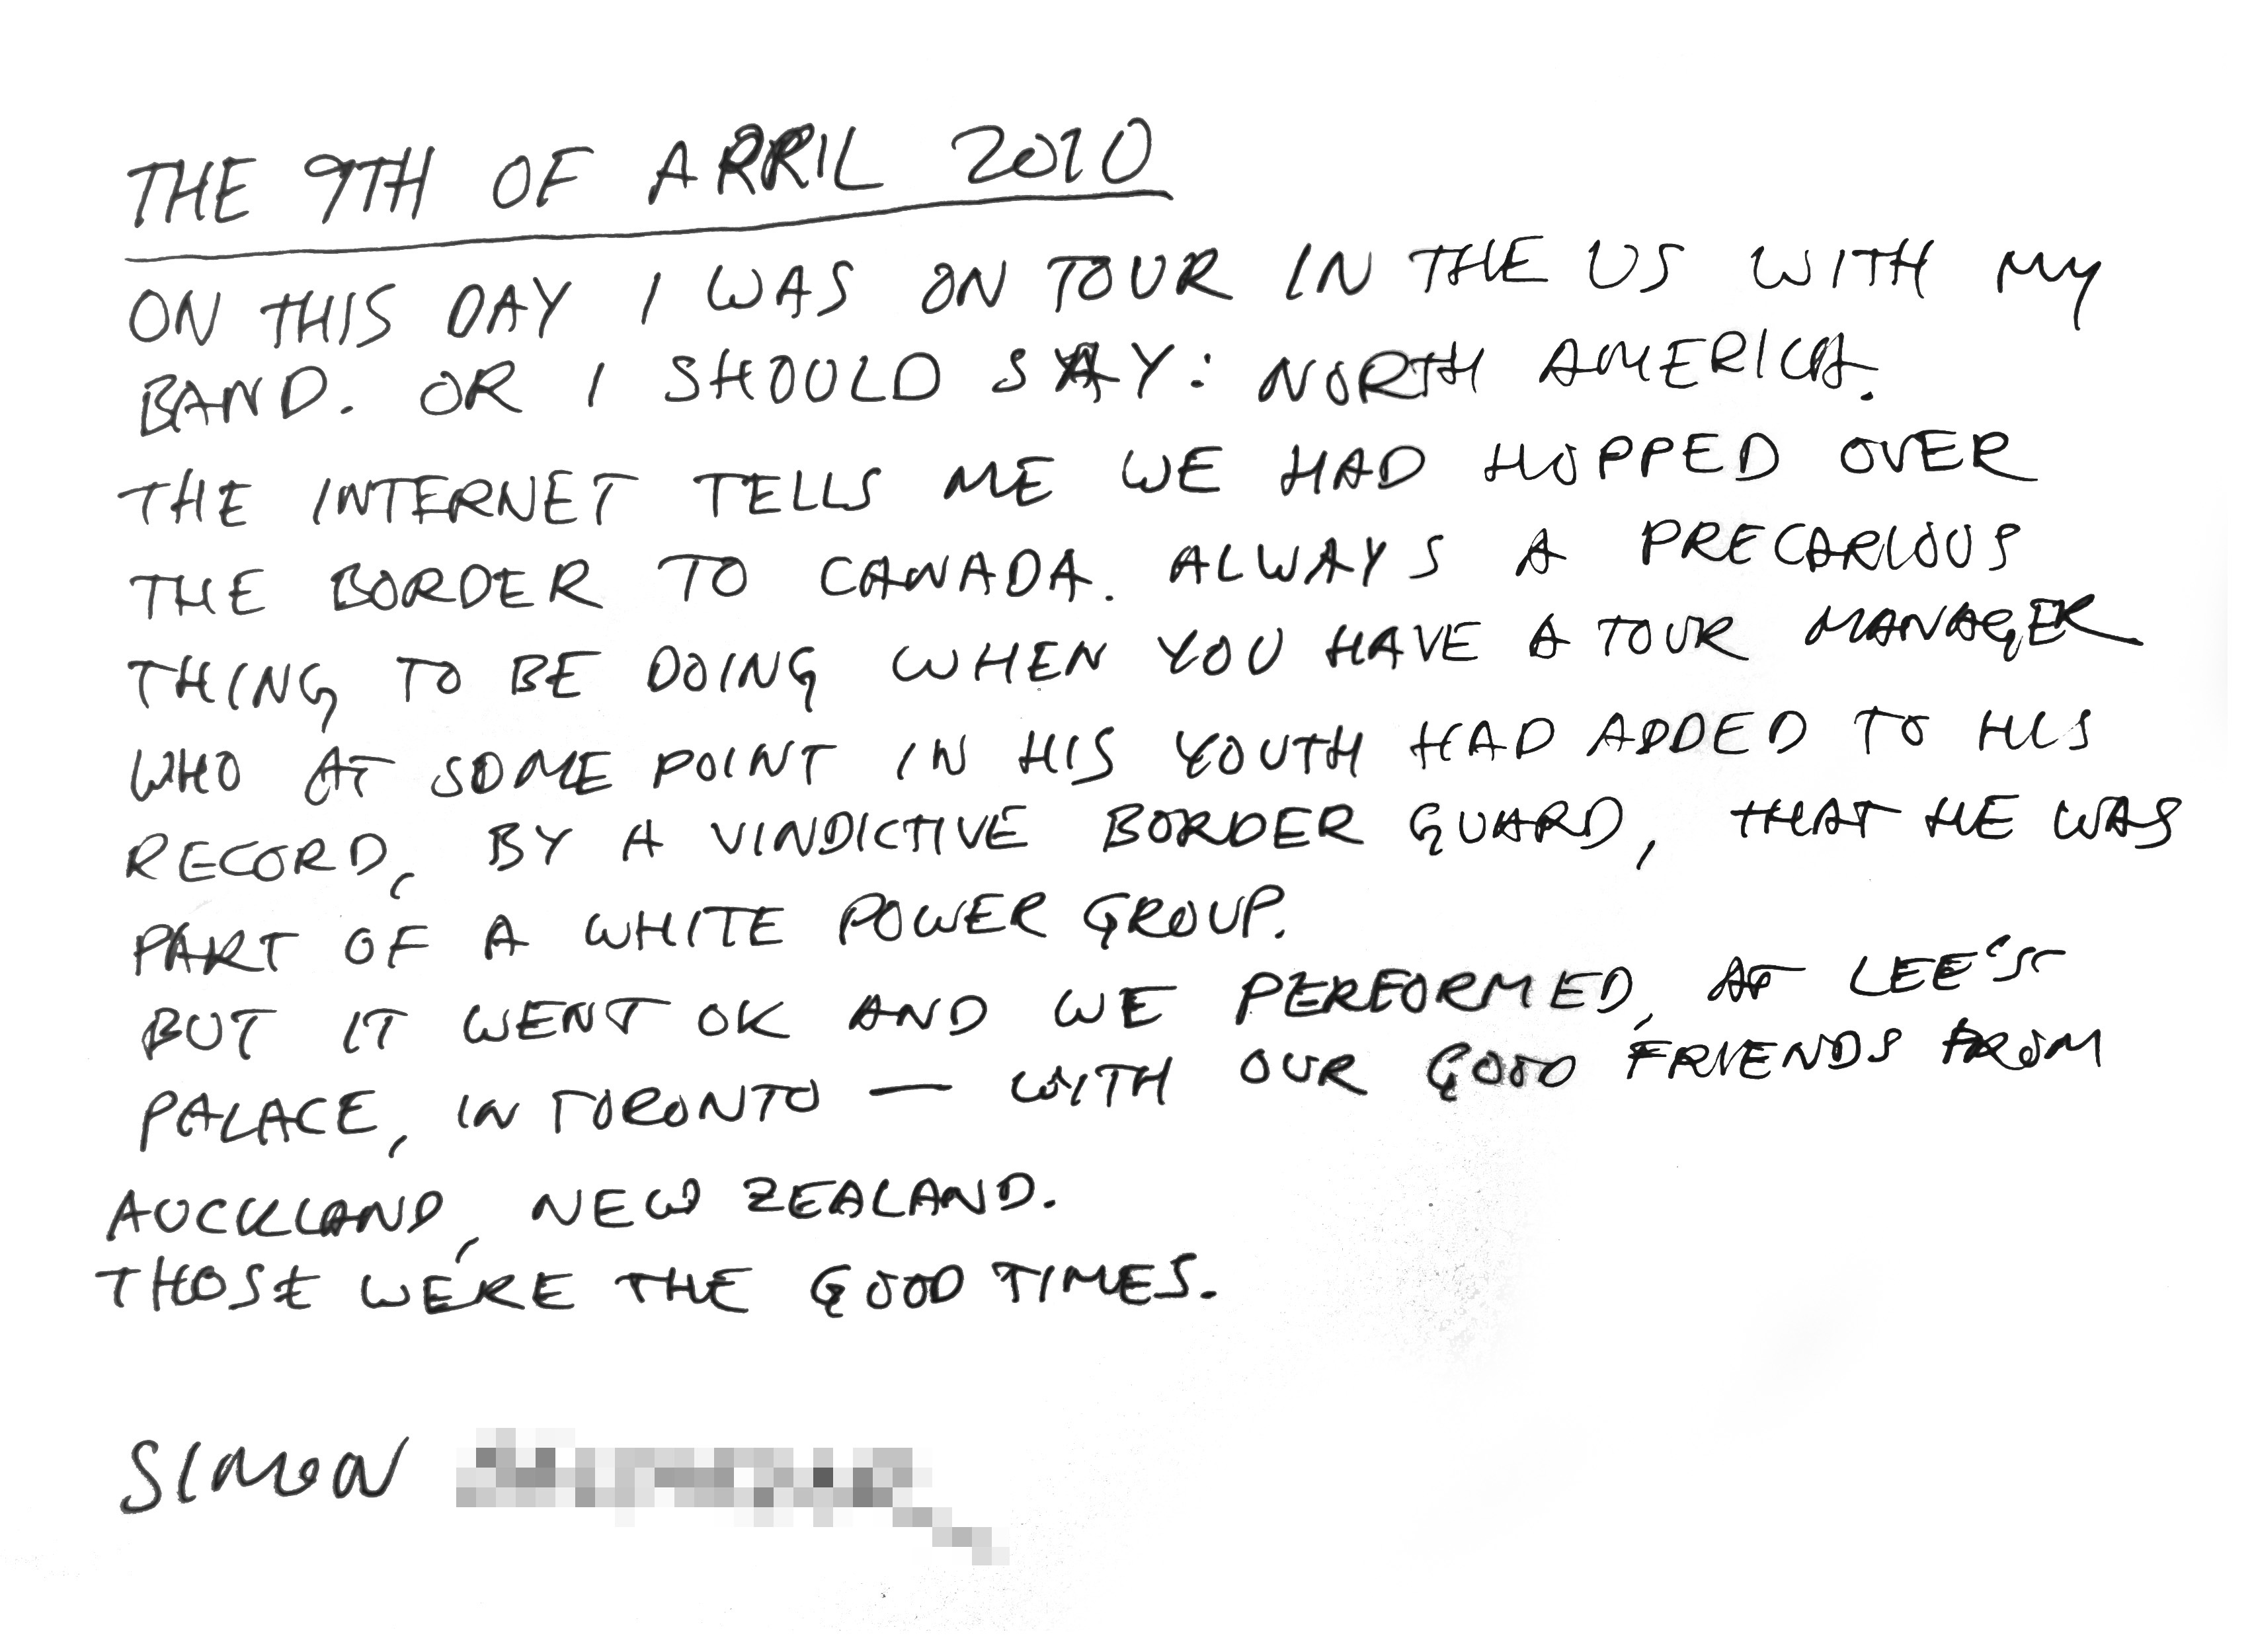 THE 9TH OF APRIL 2010
ON THIS DAY I WAS ON TOUR IN THE US WITH MY
BAND. OR I SHOULD SAY: NORTH AMERICA.
THE INTERNET TELLS ME WE HAD HOPPED OVER
THE BORDER TO CANADA. ALWAYS A PRECARIOUS
THING TO BE DOING WHEN YOU HAVE A TOUR MANAGER
WHO AT SOME POINT IN HIS YOUTH HAD ADDED TO HIS
RECORD, BY A VINDICTIVE BORDER GUARD, THAT HE WAS
PART OF A WHITE POWER GROUP.
BUT IT WENT OK AND WE PERFORMED, AT LEE'S
PALACE, IN TORONTO — WITH OUR GOOD FRIENDS FROM
AUCKLAND, NEW ZEALAND.
THOSE WERE THE GOOD TIMES.
SIMON